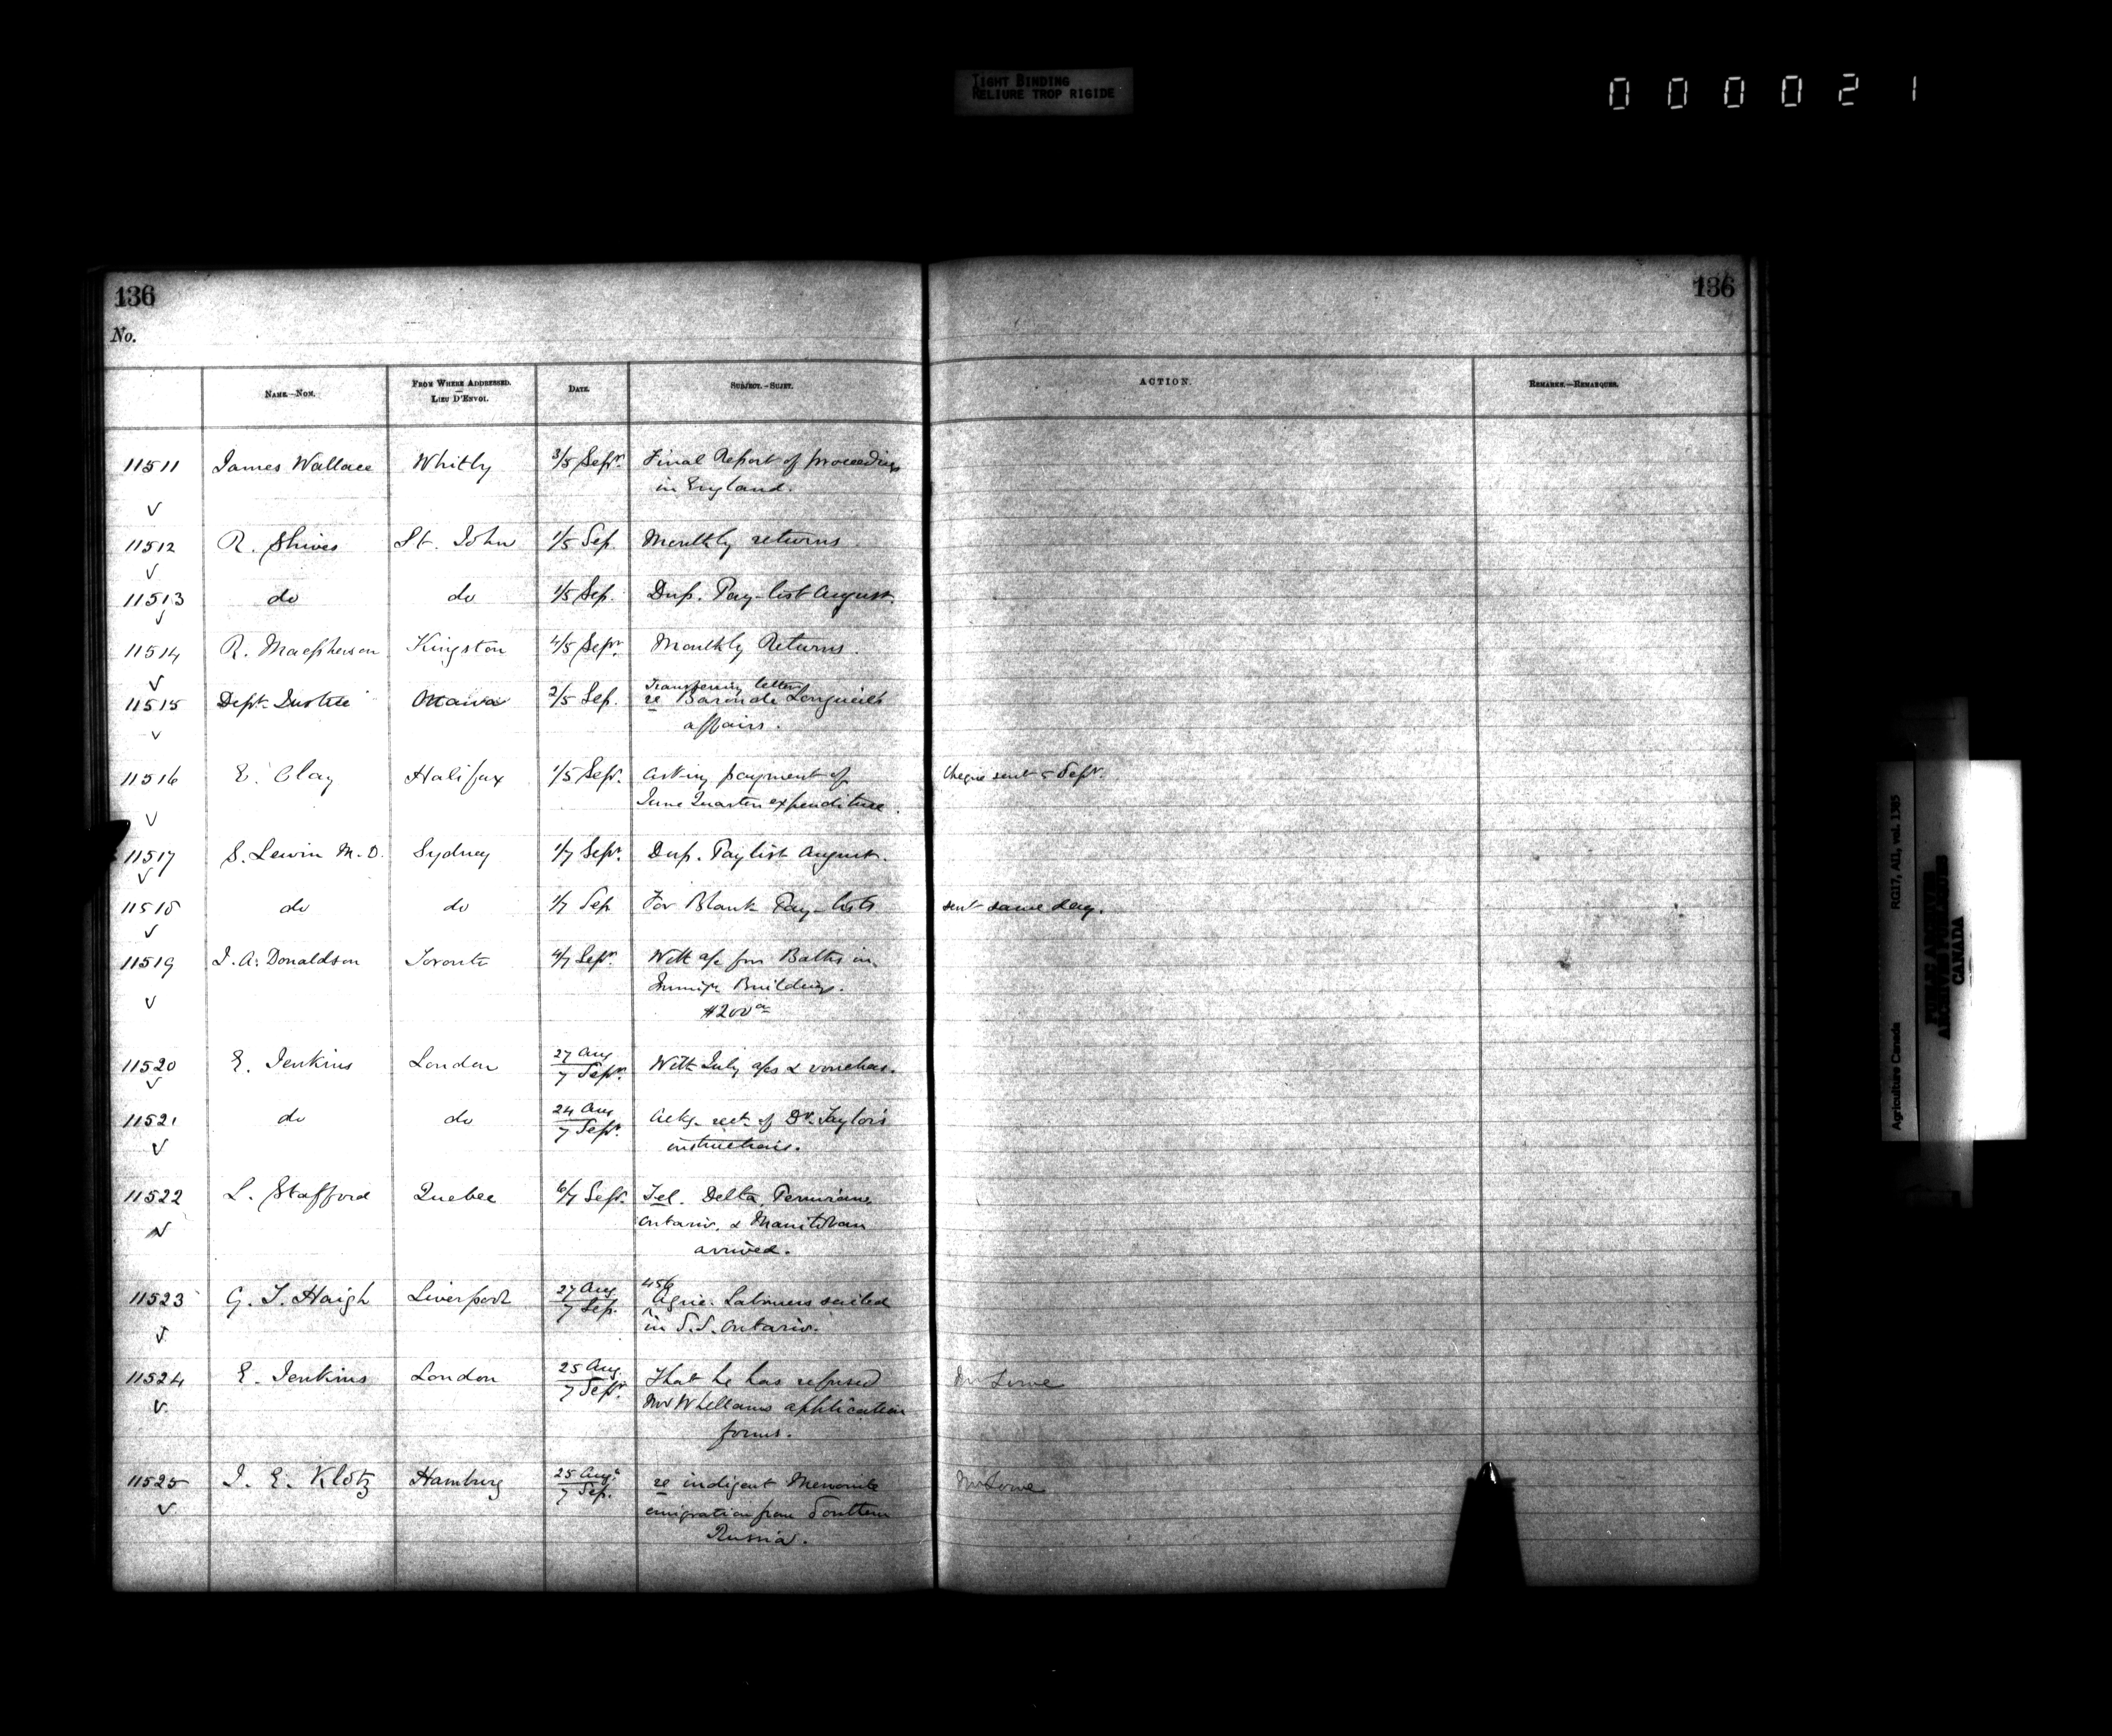 TIGHT BINDING
RELIURE TROP RIGIDE
0 0 0 0 2 1
136
136
No.
NAME.—NOM.
FROM WHERE ADDRESSED.
LIEU D'ENVOI.
DATE.
SUBJECT.—SUJET.
ACTION.
REMARKS.—REMARQUES.
11511 James Wallace Whitby 3/5 Sepr. Final Report of proceedings
in England.
11512 R. Shives St. John 1/5 Sep. Monthly returns
11513 do do 1/5 Sep. Dup. Pay-list August.
11514 R. Macpherson Kingston 4/5 Sepr. Monthly Returns.
11515 Dept. Justice Ottawa 2/5 Sep. Transferring letter
re Baron de Longueuil's
affairs.
11516 E. Clay Halifax 1/5 Sepr. Asking payment of Cheque sent 5 Sepr.
June Quarter expenditure.
11517 S. Lewin M.D. Sydney 1/7 Sepr. Dup. Paylist August.
11518 do do 1/7 Sep For Blank Pay-lists sent same day.
11519 J. A. Donaldson Toronto 4/7 Sepr. With a/c for Baths in
Immigr Buildings.
$200
11520 E. Jenkins London 27 Aug
7 Sepr. With July a/cs & vouchers.
11521 do do 24 Aug
7 Sepr. Ackg. rect. of Dr. Taylor's
instructions.
11522 L. Stafford Quebec 6/7 Sepr. Tel. Delta, Peruvian,
Ontario, & Manitoban
arrived.
11523 G. T. Haigh Liverpool 27 Aug
7 Sep. 456 Agric. Labourers sailed
in S.S. Ontario.
11524 E. Jenkins London 25 Aug
7 Sepr. That he has refused Mr Lowe
Mr Whellams application
forms.
11525 J. E. Klotz Hamburg 25 Aug.
7 Sep. re indigent Menonite Mr Lowe
emigration from Southern
Russia.
Agriculture Canada RG17, AII, vol. 1385
PUBLIC ARCHIVES
ARCHIVES PUBLIQUES
CANADA